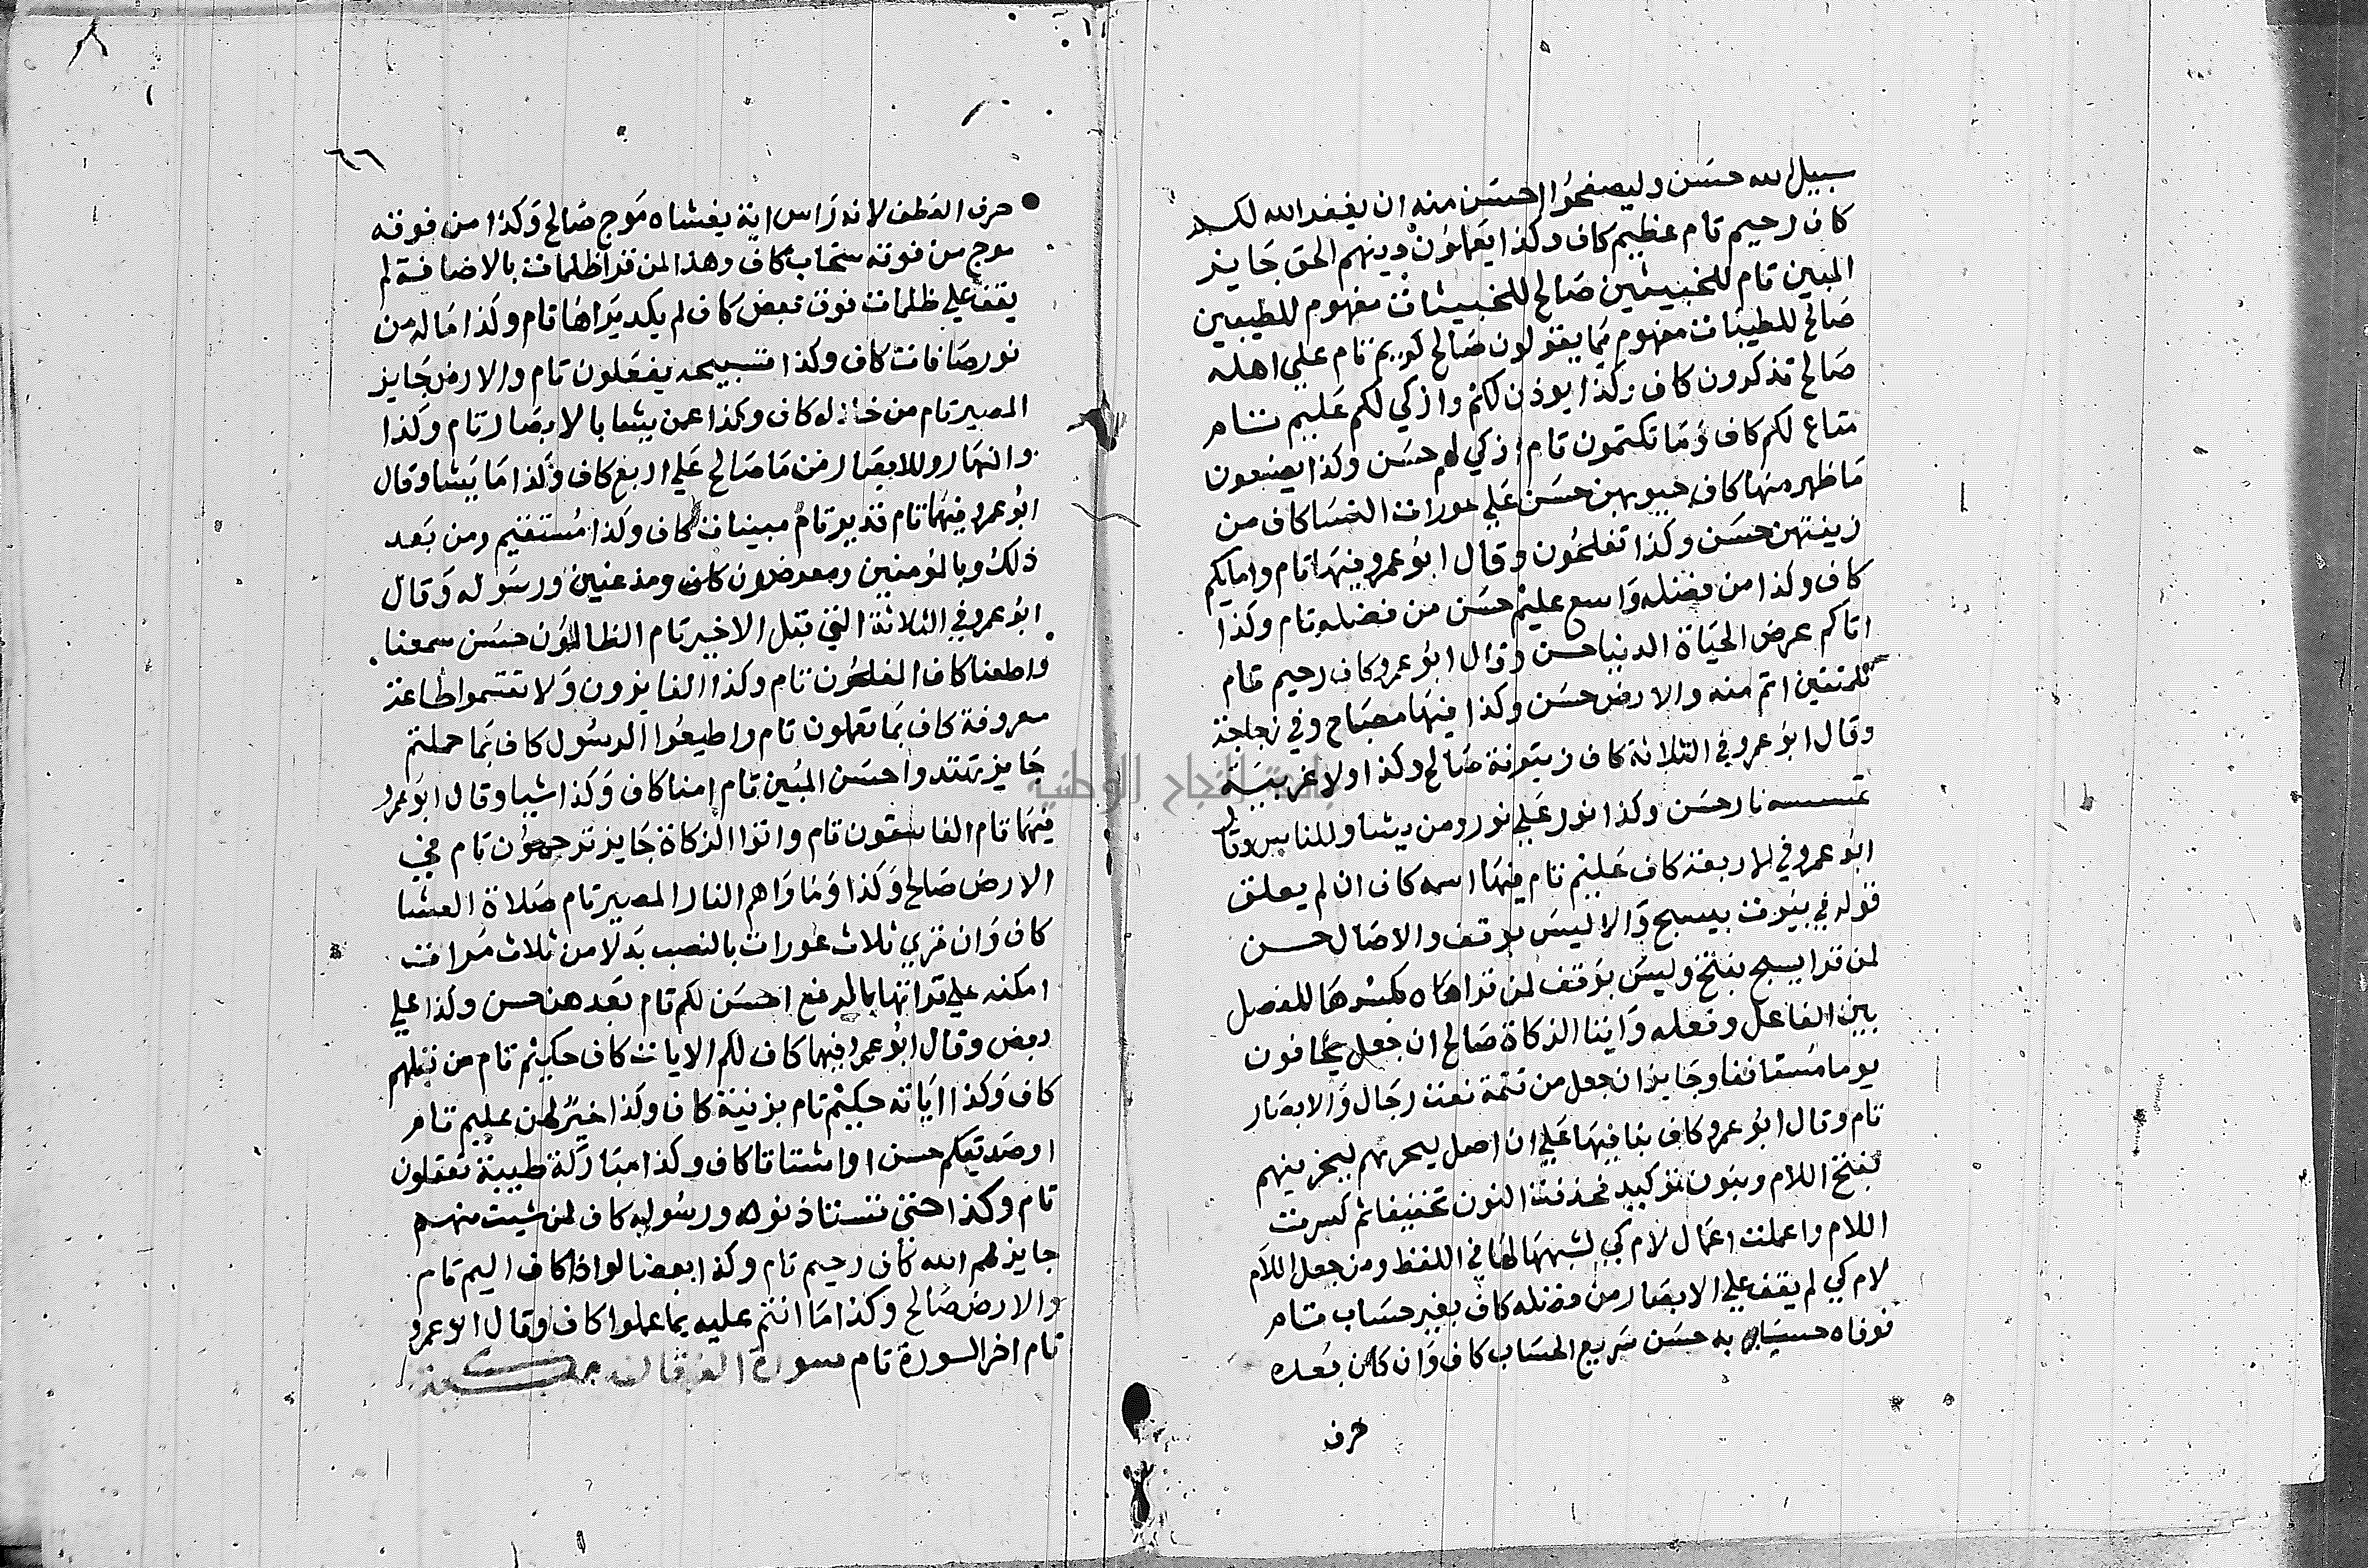 سبيل الله حسن وليصفحوا احسن منه ان يغفر الله لكم
كاف رحيم تام عظيم كاف وكذا يعملون دينهم الحق جايز
المبين تام للخبيثين صالح للخبيثات مفهوم للطيبين
صالح للطيبات مفهوم مما يقولون صالح كريم تام علي اهلها
صالح تذكرون كاف وكذا يوذن لكم وازكي لكم عليم تام
متاع لكم كاف وما تكتمون تام ازكي لهم حسن وكذا يصنعون
ما ظهر منها كاف جيوبهن حسن علي عورات النسا كاف من
زينتهن حسن وكذا تفلحون وقال ابو عمرو فيها تام وامايكم
كاف وكذا من فضله واسع عليم حسن من فضله تام وكذا
اتاكم عرض الحياة الدنيا حسن وقال ابو عمرو كاف رحيم تام
للمتقين اتم منه والارض حسن وكذا فيها مصباح وفي زجاجة
وقال ابو عمرو في الثلاثة كاف زيتونة صالح وكذا ولا غربية
تمسسه نار حسن وكذا نور علي نور ومن يشا وللناس وقال
ابو عمرو في الاربعة كاف عليم تام فيها اسمه كاف ان لم يعلق
قوله في بيوت بيسبح والا ليس بوقف والاصال حسن
لمن قرا يسبح بفتح وليس بوقف لمن قراها بكسرها للفصل
بين الفاعل وفعله وايتا الزكاة صالح ان جعل يخافون
يوما مستانفا وجايز ان جعل من تتمة نعت رجال والابصار
تام وقال ابو عمرو كاف بنا فيها علي ان اصل ليجزيهم ليجزينهم
بفتح اللام وبنون توكيد فحذفت النون تخفيفا ثم كسرت
اللام واعملت اعمال لام كي لشبهها لها في اللفظ ومن جعل اللام
لام كي لم يقف علي الابصار من فضله كاف بغير حساب تام
فوفاه حسابه حسن سريع الحساب كاف وان كان بعده
حرف
٦٦
حرف العطف لانه راس اية يغشاه موج صالح وكذا من فوقه
موج من فوقه سحاب كاف وهذا لمن قرا ظلمات بالاضافة لم
يقف علي ظلمات فوق بعض كاف لم يكد يراها تام وكذا ما له من
نور صافات كاف وكذا تسبيحه يفعلون تام والارض جايز
المصير تام من خلاله كاف وكذا عمن يشا بالابصار تام وكذا
والنهار وللابصار من ما صالح علي اربع كاف وكذا ما يشا وقال
ابو عمرو فيهما تام قدير تام مبينات كاف وكذا مستقيم ومن بعد
ذلك وبالمومنين ومعرضون كاف ومذعنين ورسوله وقال
ابو عمرو في الثلاثة التي قبل الاخير تام الظالمون حسن سمعنا
واطعنا كاف المفلحون تام وكذا الفايزون ولا تقسموا طاعة
معروفة كاف بما تعملون تام واطيعوا الرسول كاف بما حملتم
جايز تهتدوا حسن المبين تام امنا كاف وكذا شيا وقال ابو عمرو
فيهما تام الفاسقون تام واتوا الزكاة جايز ترحمون تام في
الارض صالح وكذا وماواهم النار المصير تام صلاة العشا
كاف وان قري ثلاث عورات بالنصب بدلا من ثلاث مرات
لكنه علي قراتها بالرفع احسن لكم تام بعدهن حسن وكذا علي
بعض وقال ابو عمرو فيها كاف لكم الايات كاف حكيم تام من قبلهم
كاف وكذا اياته حكيم تام بزينة كاف وكذا خير لهن عليم تام
او صديقكم حسن او اشتاتا كاف وكذا مباركة طيبة تعقلون
تام وكذا حتي تستاذنوه ورسوله كاف لمن شيت منهم
جايز لهم الله كاف رحيم تام وكذا بعضا لواذا كاف اليم تام
والارض صالح وكذا ما انتم عليه بما عملوا كاف وقال ابو عمرو
تام اخر السورة تام سورة الفرقان مكية
جامعة النجاح الوطنية